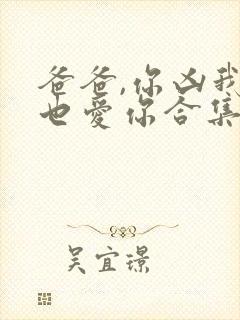 爸爸,你凶我
也爱你合集
吴宜璟